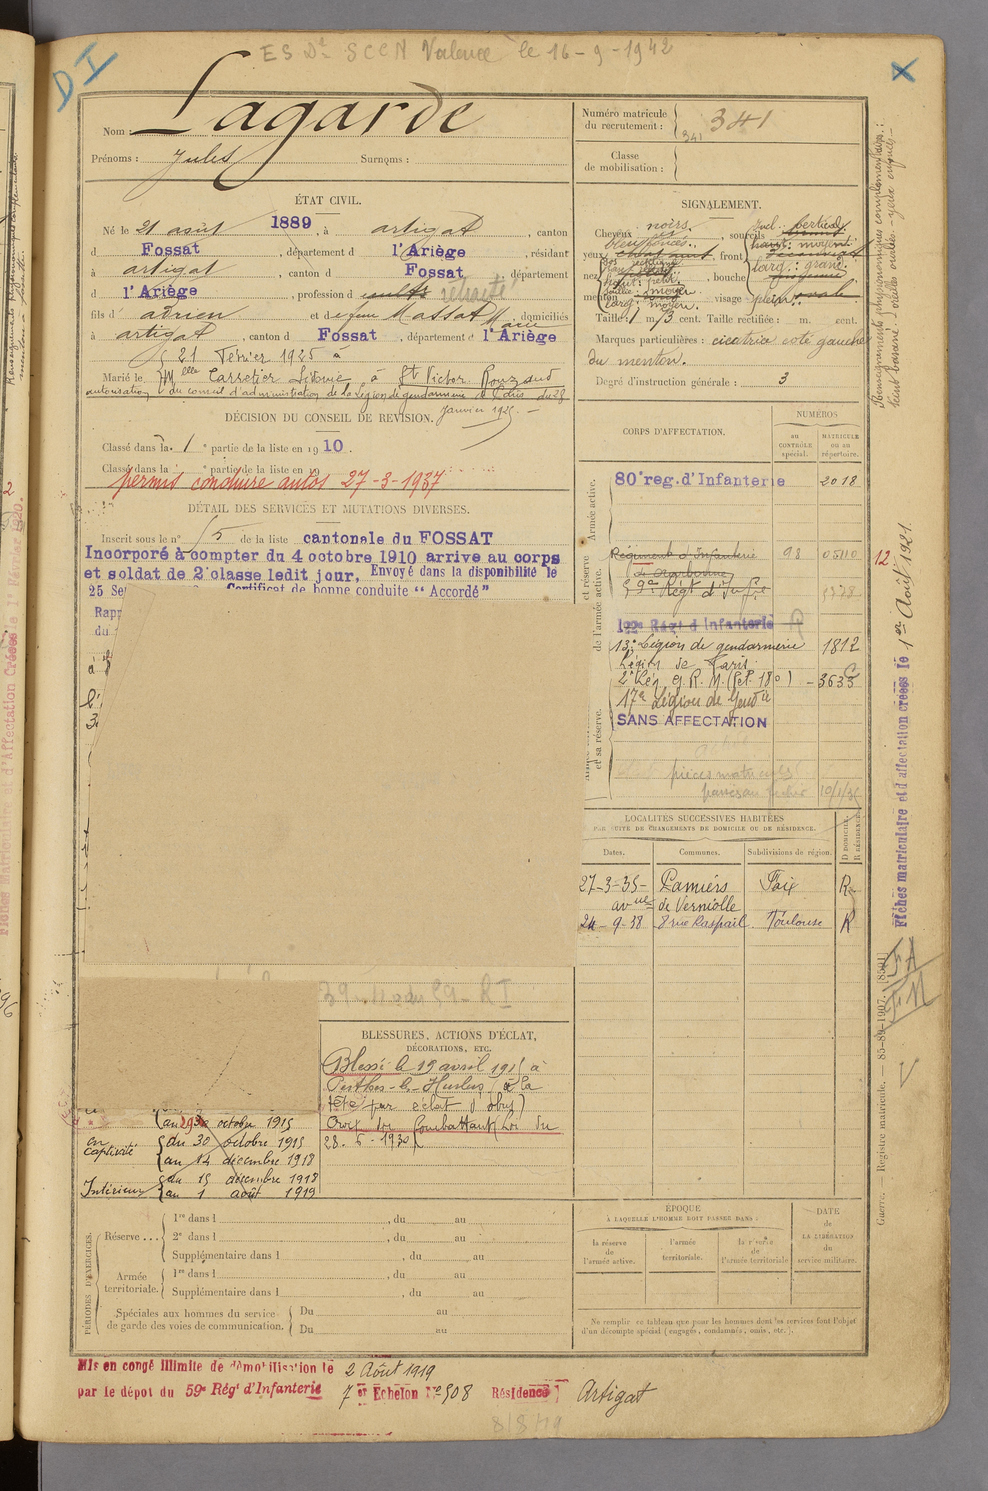 ES Dt SCCN Valence le 16-9-1942
DI
X
Nom : Lagarde
Prénoms : Jules Surnoms :
Numéro matricule du recrutement : 341
341
Classe de mobilisation :
ÉTAT CIVIL.
Né le 21 août 1889, à artigat, canton
d Fossat, département d l'Ariège, résidant
à artigat, canton d Fossat, département
d l'Ariège, profession d retraité
fils d' adrien et de feue Massat Marie, domiciliés
à artigat, canton d Fossat, département d l'Ariège
21 Février 1925 à
Marié le Melle Carretier Sidonie à St Victor Rouzaud
autorisation du conseil d'administration de la Légion de gendarmerie de Paris du 28
Janvier 1925.
DÉCISION DU CONSEIL DE REVISION.
Classé dans la 1e partie de la liste en 1910.
Classé dans la e partie de la liste en 19
permis conduire autos 27-3-1937
DÉTAIL DES SERVICES ET MUTATIONS DIVERSES.
Inscrit sous le n° 15 de la liste cantonale du FOSSAT
Incorporé à compter du 4 octobre 1910 arrive au corps
et soldat de 2e classe ledit jour, Envoyé dans la disponibilité le
25 Se
Certificat de bonne conduite "Accordé"
Rap
du
SIGNALEMENT.
Cheveux noirs, sourcils
bleu foncés
yeux, front
haut: moyen
larg.: grand
nez, bouche
menton, visage plein
Taille: 1 m. 73 cent. Taille rectifiée : m. cent.
Marques particulières : cicatrice coté gauche
du menton.
Degré d'instruction générale : 3
CORPS D'AFFECTATION.
NUMÉROS
au CONTRÔLE spécial.
MATRICULE ou au répertoire.
Armée active.
80e reg. d'Infanterie 2018
Régiment d'Infanterie 98 05110
de Narbonne
59e Régt d'Infie
122e Régt d'Infanterie
13e Légion de gendarmerie 1812
Légion de Paris
2e Lég. G. R. M. (Pet. 180) - 3635
17e Légion de Gendie
SANS AFFECTATION
pièces matricules
LOCALITÉS SUCCESSIVES HABITÉES
PAR SUITE DE CHANGEMENTS DE DOMICILE OU DE RÉSIDENCE.
Dates. Communes. Subdivisions de région. D DOMICILE. R RÉSIDENCE.
27-3-35- Pamiers Foix R
avue de Verniolle
24-9-38 8 rue Raspail Toulouse R
39 - RI
BLESSURES, ACTIONS D'ÉCLAT,
DÉCORATIONS, ETC.
Blessé le 19 avril 1915 à
Perthes-les-Hurlus (à la
tête par éclat d'obus)
Croix du Combattant (Loi du
28.6-1930)
au 29 octobre 1915
en captivité du 30 octobre 1915
au 14 décembre 1918
Intérieur du 15 décembre 1918
au 1 août 1919
PÉRIODES D'EXERCICES.
Réserve ... 1re dans l , du au
2e dans l , du au
Supplémentaire dans l , du au
Armée territoriale. 1re dans l , du au
Supplémentaire dans l , du au
Spéciales aux hommes du service de garde des voies de communication. Du au
Du au
ÉPOQUE
À LAQUELLE L'HOMME DOIT PASSER DANS :
la réserve de l'armée active.
l'armée territoriale.
la réserve de l'armée territoriale
DATE de LA LIBÉRATION du service militaire.
Ne remplir ce tableau que pour les hommes dont les services font l'objet
d'un décompte spécial (engagés, condamnés, omis, etc.).
Mis en congé illimité de démobilisation le 2 Août 1919
par le dépôt du 59e Régt d'Infanterie 7 et Echelon No 508 Résidence Artigat
8/8/19
Renseignements physionomiques complémentaires :
teint basané
12.
Fiches matriculaire et d'affectation créées le 1er Août 1921.
FA
FM
V
Guerre. — Registre matricule. — 85-89-1907. [8591]
Fiches Matriculaire et d'Affectation Créées le 1 Février 1920.